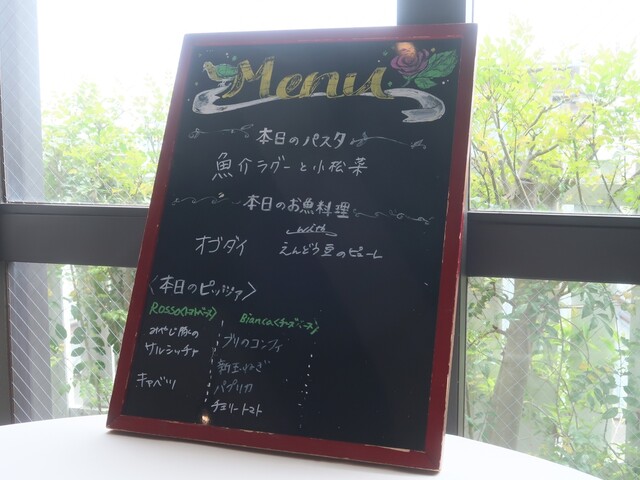 Menu
本日のパスタ
魚介ラグーと小松菜
本日のお魚料理
オゴダイ with えんどう豆のピューレ
〈本日のピッツァ〉
Rosso〈トマトベース〉
みやじ豚の
サルシッチャ
キャベツ
Bianca〈チーズベース〉
ブリのコンフィ
新玉ねぎ
パプリカ
チェリートマト